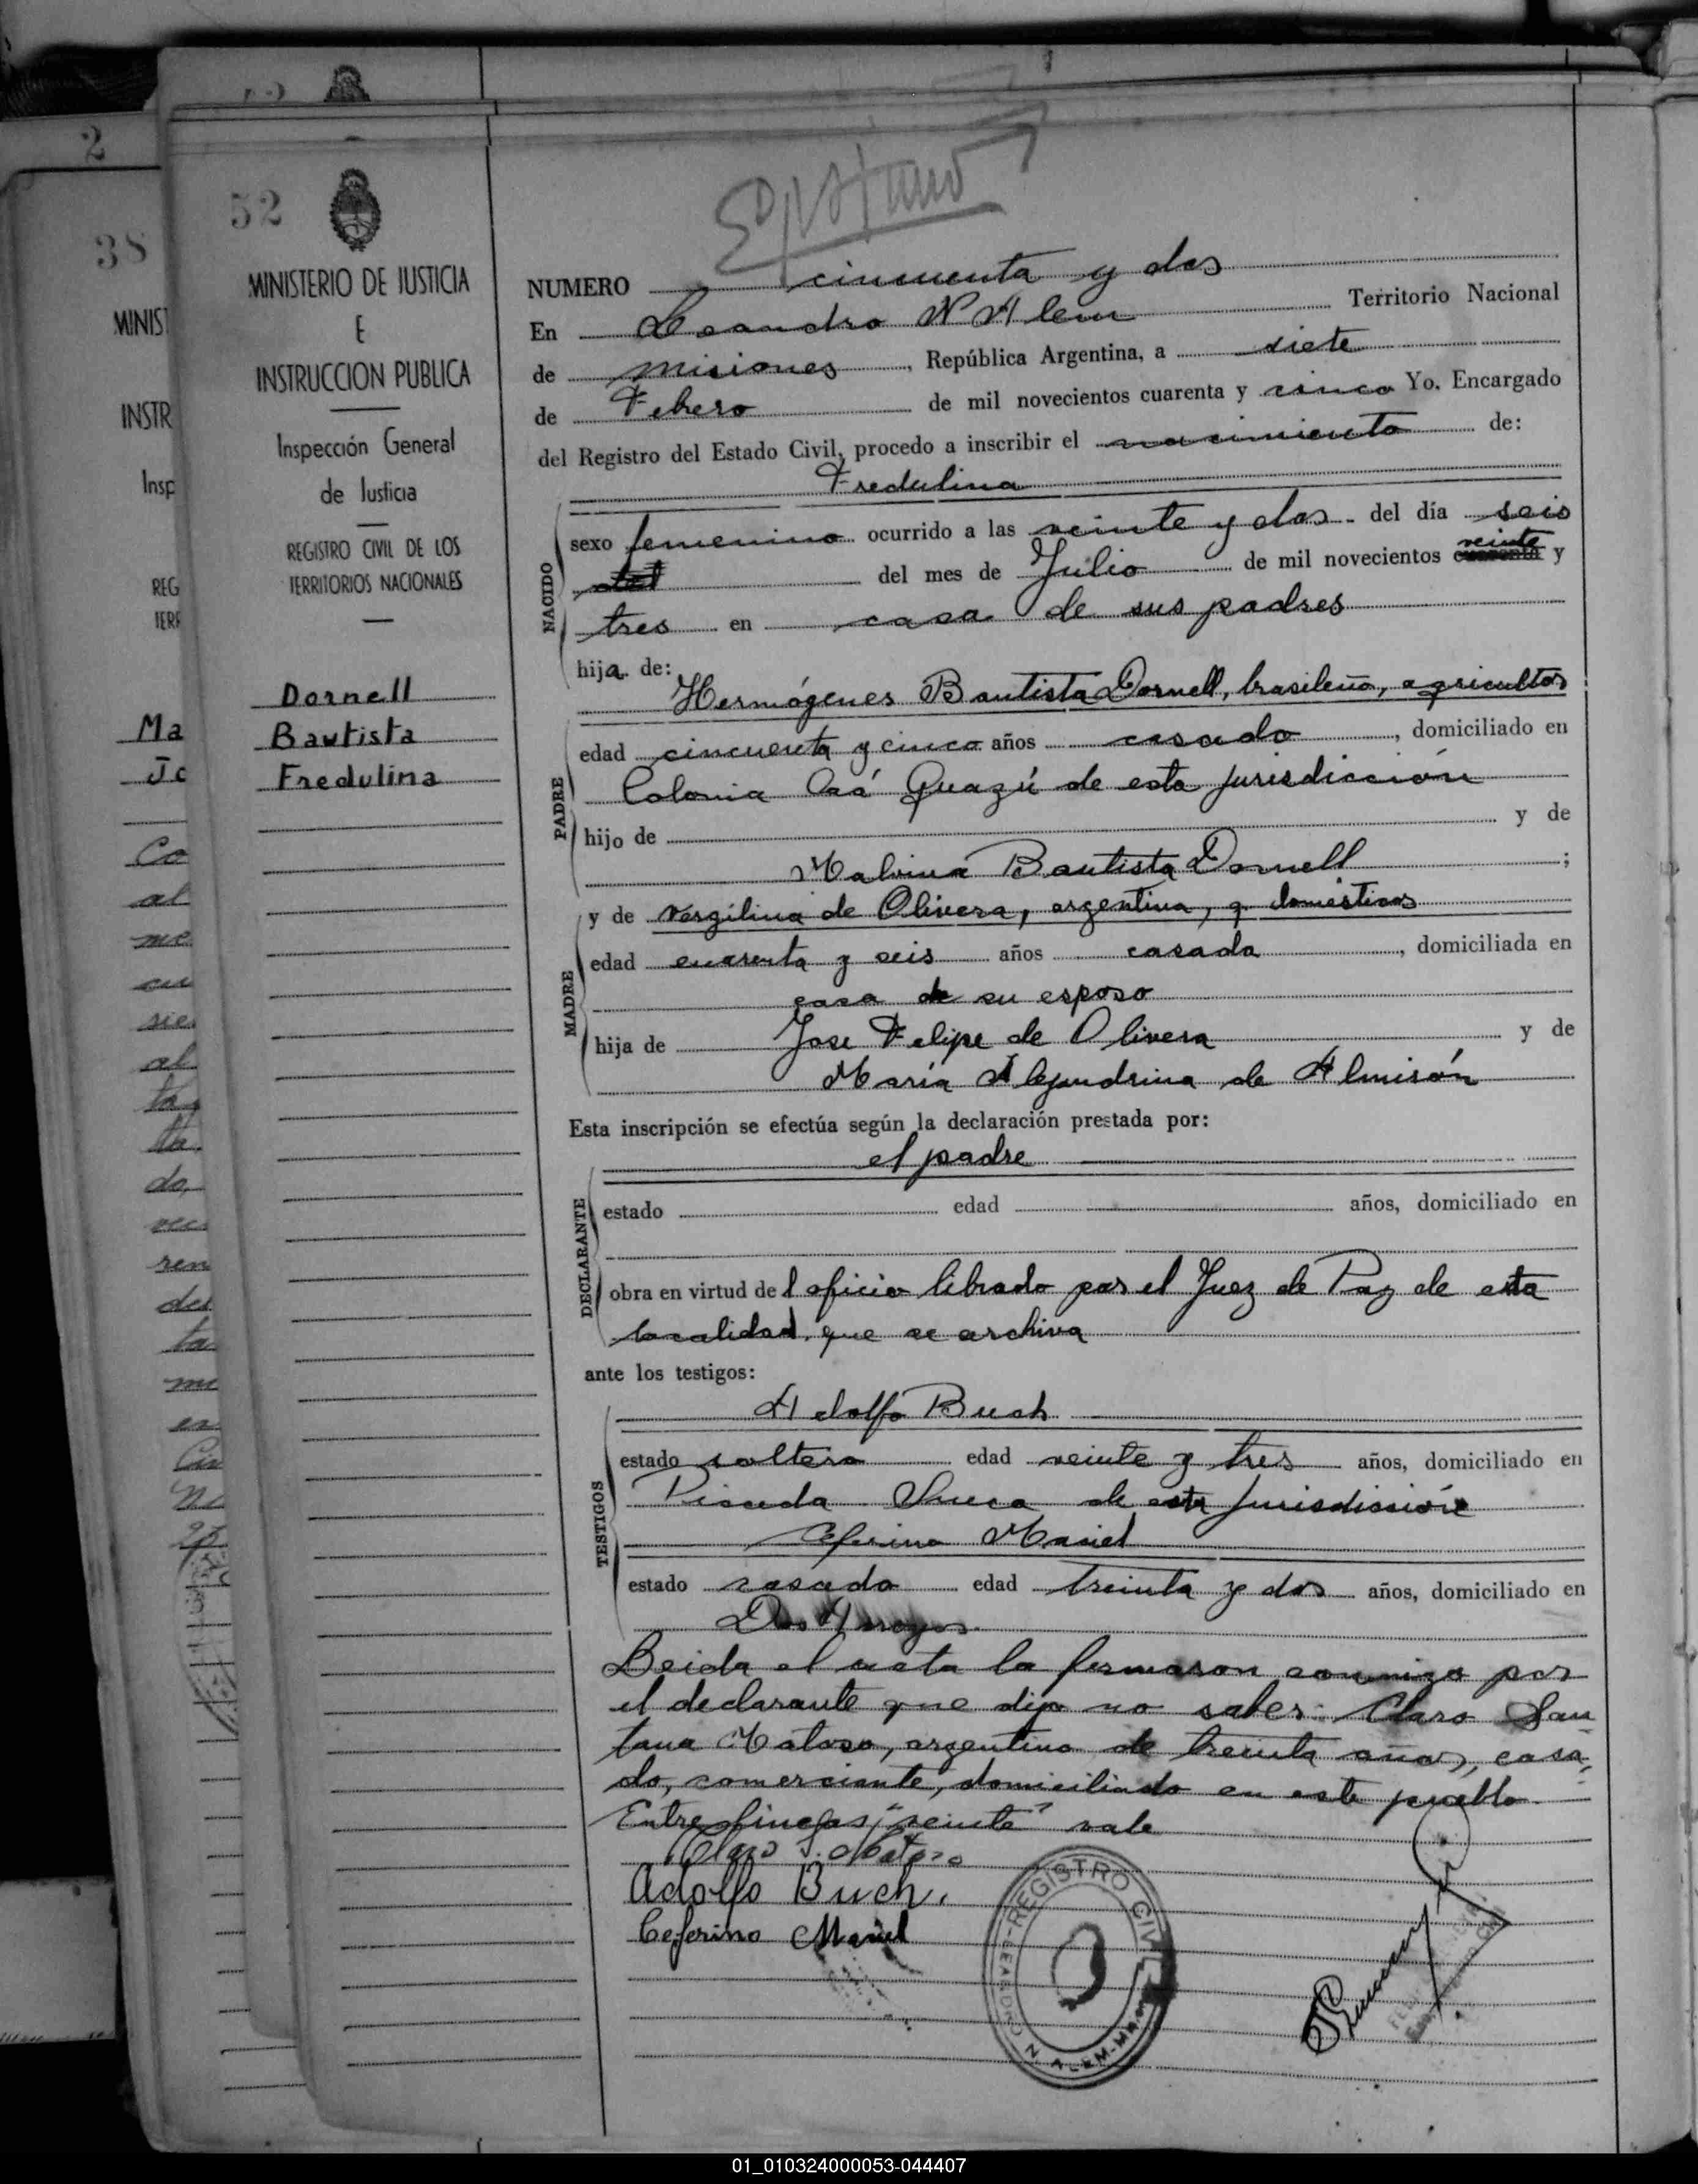 2
38
MINIST
INSTR
Insp
REG
TERR
Ma
Jo
Co
al
me
cu
sie
al
ta
la
do,
vec
ren
des
ta
mi
en
52
MINISTERIO DE JUSTICIA
E
INSTRUCCION PUBLICA
Inspección General
de Justicia
REGISTRO CIVIL DE LOS
TERRITORIOS NACIONALES
Dornell
Bautista
Fredulina
NUMERO cincuenta y dos
En Leandro N Alem Territorio Nacional
de misiones, República Argentina, a siete
de Febrero de mil novecientos cuarenta y cinco Yo. Encargado
del Registro del Estado Civil, procedo a inscribir el nacimiento de:
Fredulina
NACIDO
sexo femenino ocurrido a las veinte y dos del día seis
veinte
del mes de Julio de mil novecientos cuarenta y
tres en casa de sus padres
hija de:
PADRE
Hermógenes Bautista Dornell, brasileño, agricultor
edad cincuenta y cinco años casado, domiciliado en
Colonia Caá Guazú de esta jurisdicción
hijo de y de
Malvina Bautista Dornell;
MADRE
y de Vergilina de Olivera, argentina, q. domésticos
edad cuarenta y seis años casada, domiciliada en
casa de su esposo
hija de Jose Felipe de Olivera y de
María Alejandrina de Almirón
Esta inscripción se efectúa según la declaración prestada por:
el padre
DECLARANTE
estado edad años, domiciliado en
obra en virtud del oficio librado por el Juez de Paz de esta
localidad que se archiva
ante los testigos:
TESTIGOS
Adolfo Buch
estado soltero edad veinte y tres años, domiciliado en
Picada Sueca de esta jurisdicción
Ceferino Maciel
estado casado edad treinta y dos años, domiciliado en
Dos Arroyos
Leida el acta la firmaron conmigo por
el declarante que dijo no saber: Claro San
tana Matoso, argentino de treinta años, casa
do, comerciante, domiciliado en este pueblo
Entre lineas "veinte" vale
Claro S. Matoso
Adolfo Buch.
Ceferino Maciel
REGISTRO CIVIL
LEANDRO N. ALEM
01_010324000053-044407